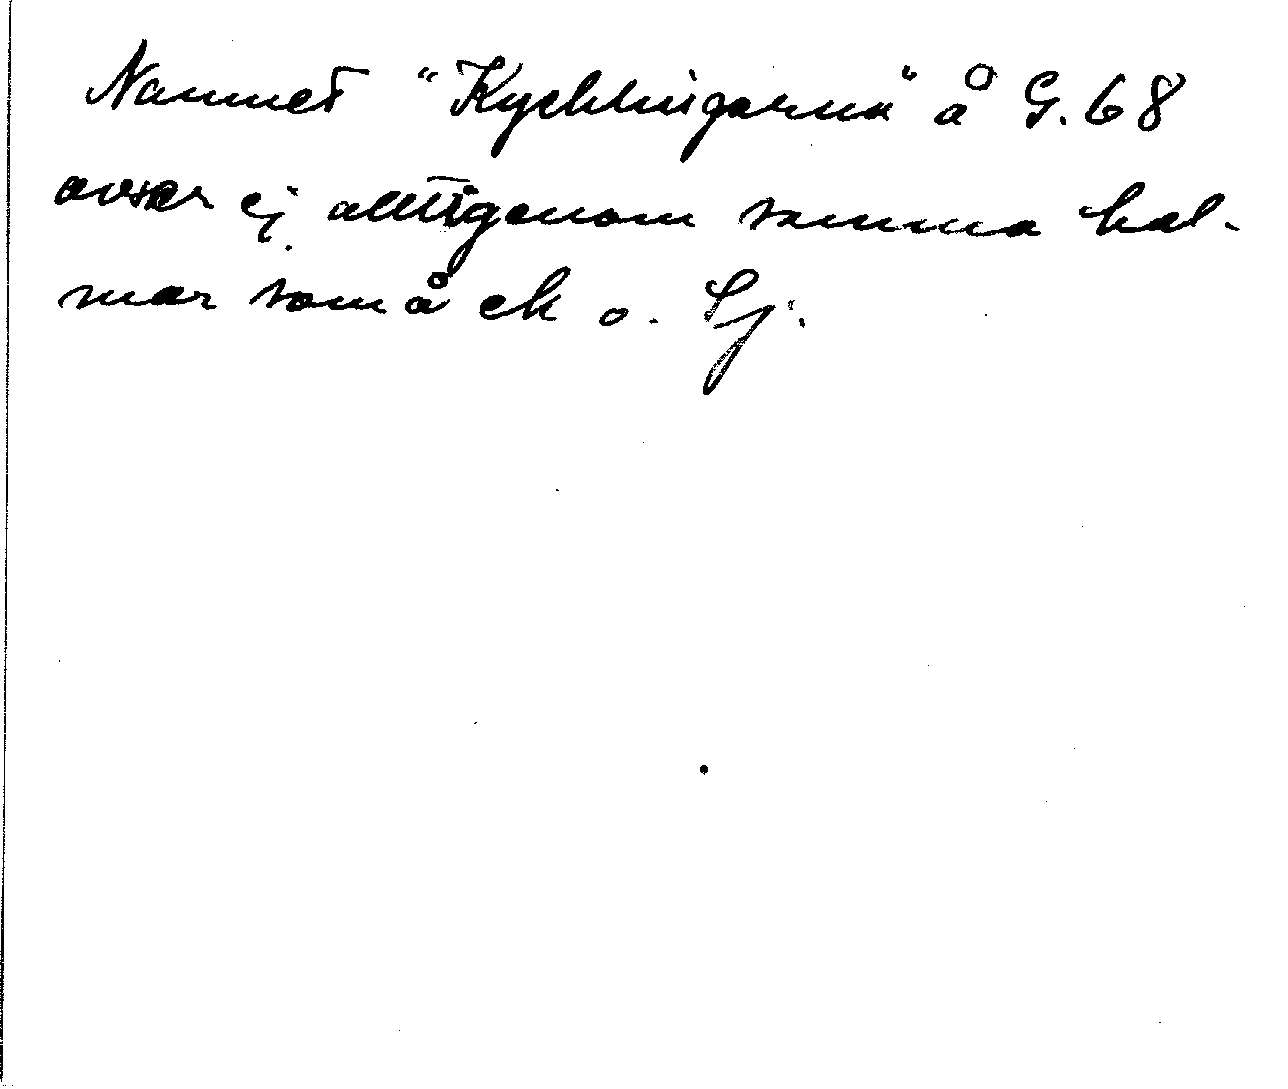 Namnet "Kycklingarna" å G. 68
avser ej alltigenom samma hol-
mar som å ek o. Sj.